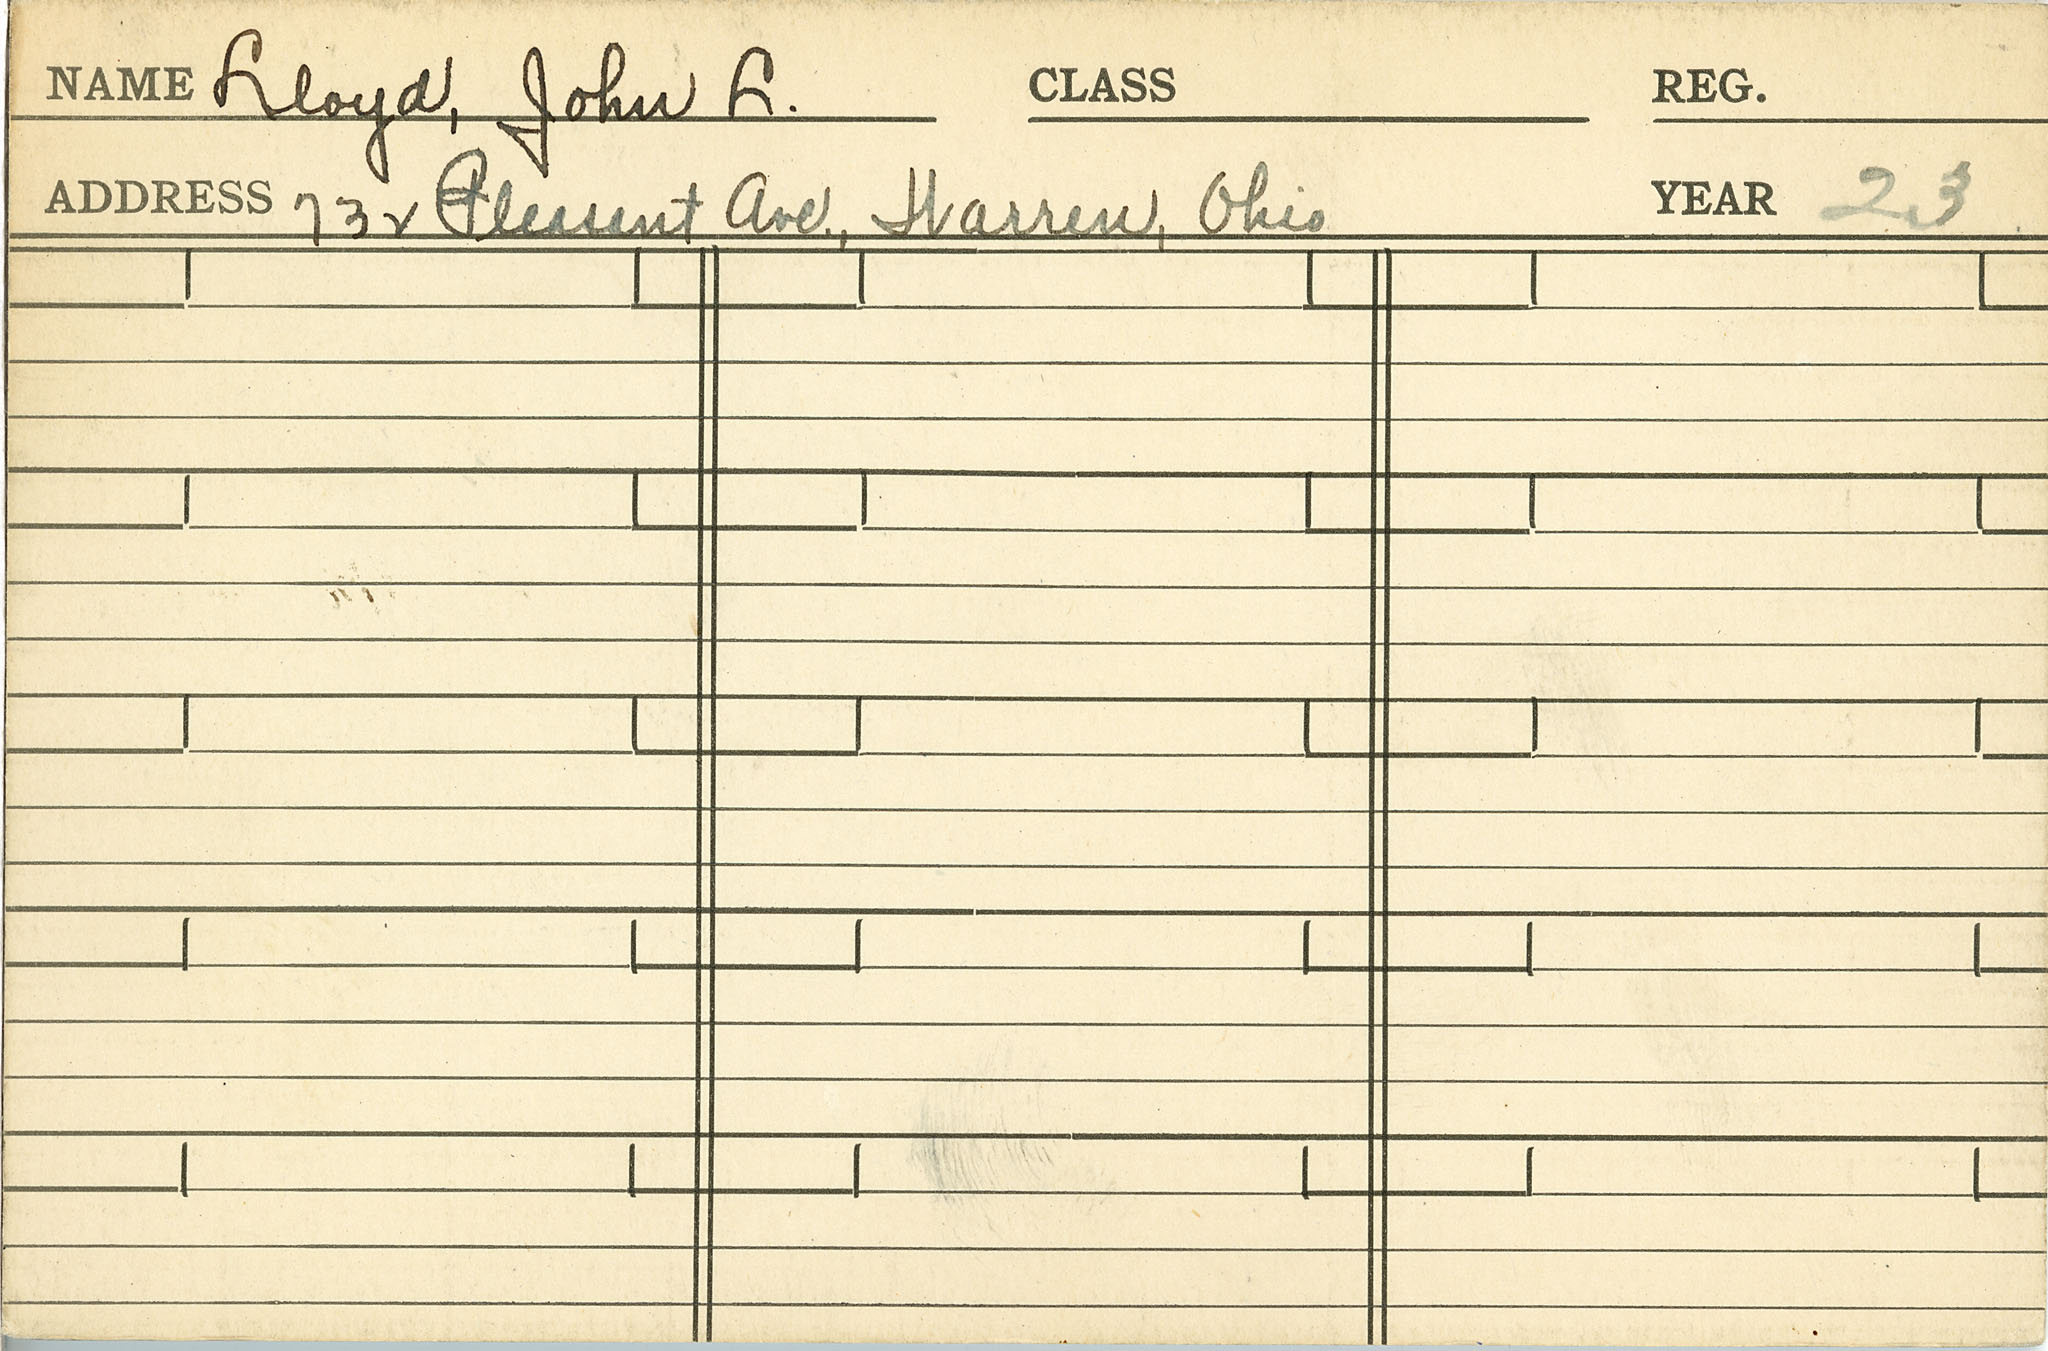 NAME Lloyd, John L. CLASS REG.
ADDRESS 732 Pleasant Ave., Warren, Ohio YEAR 23